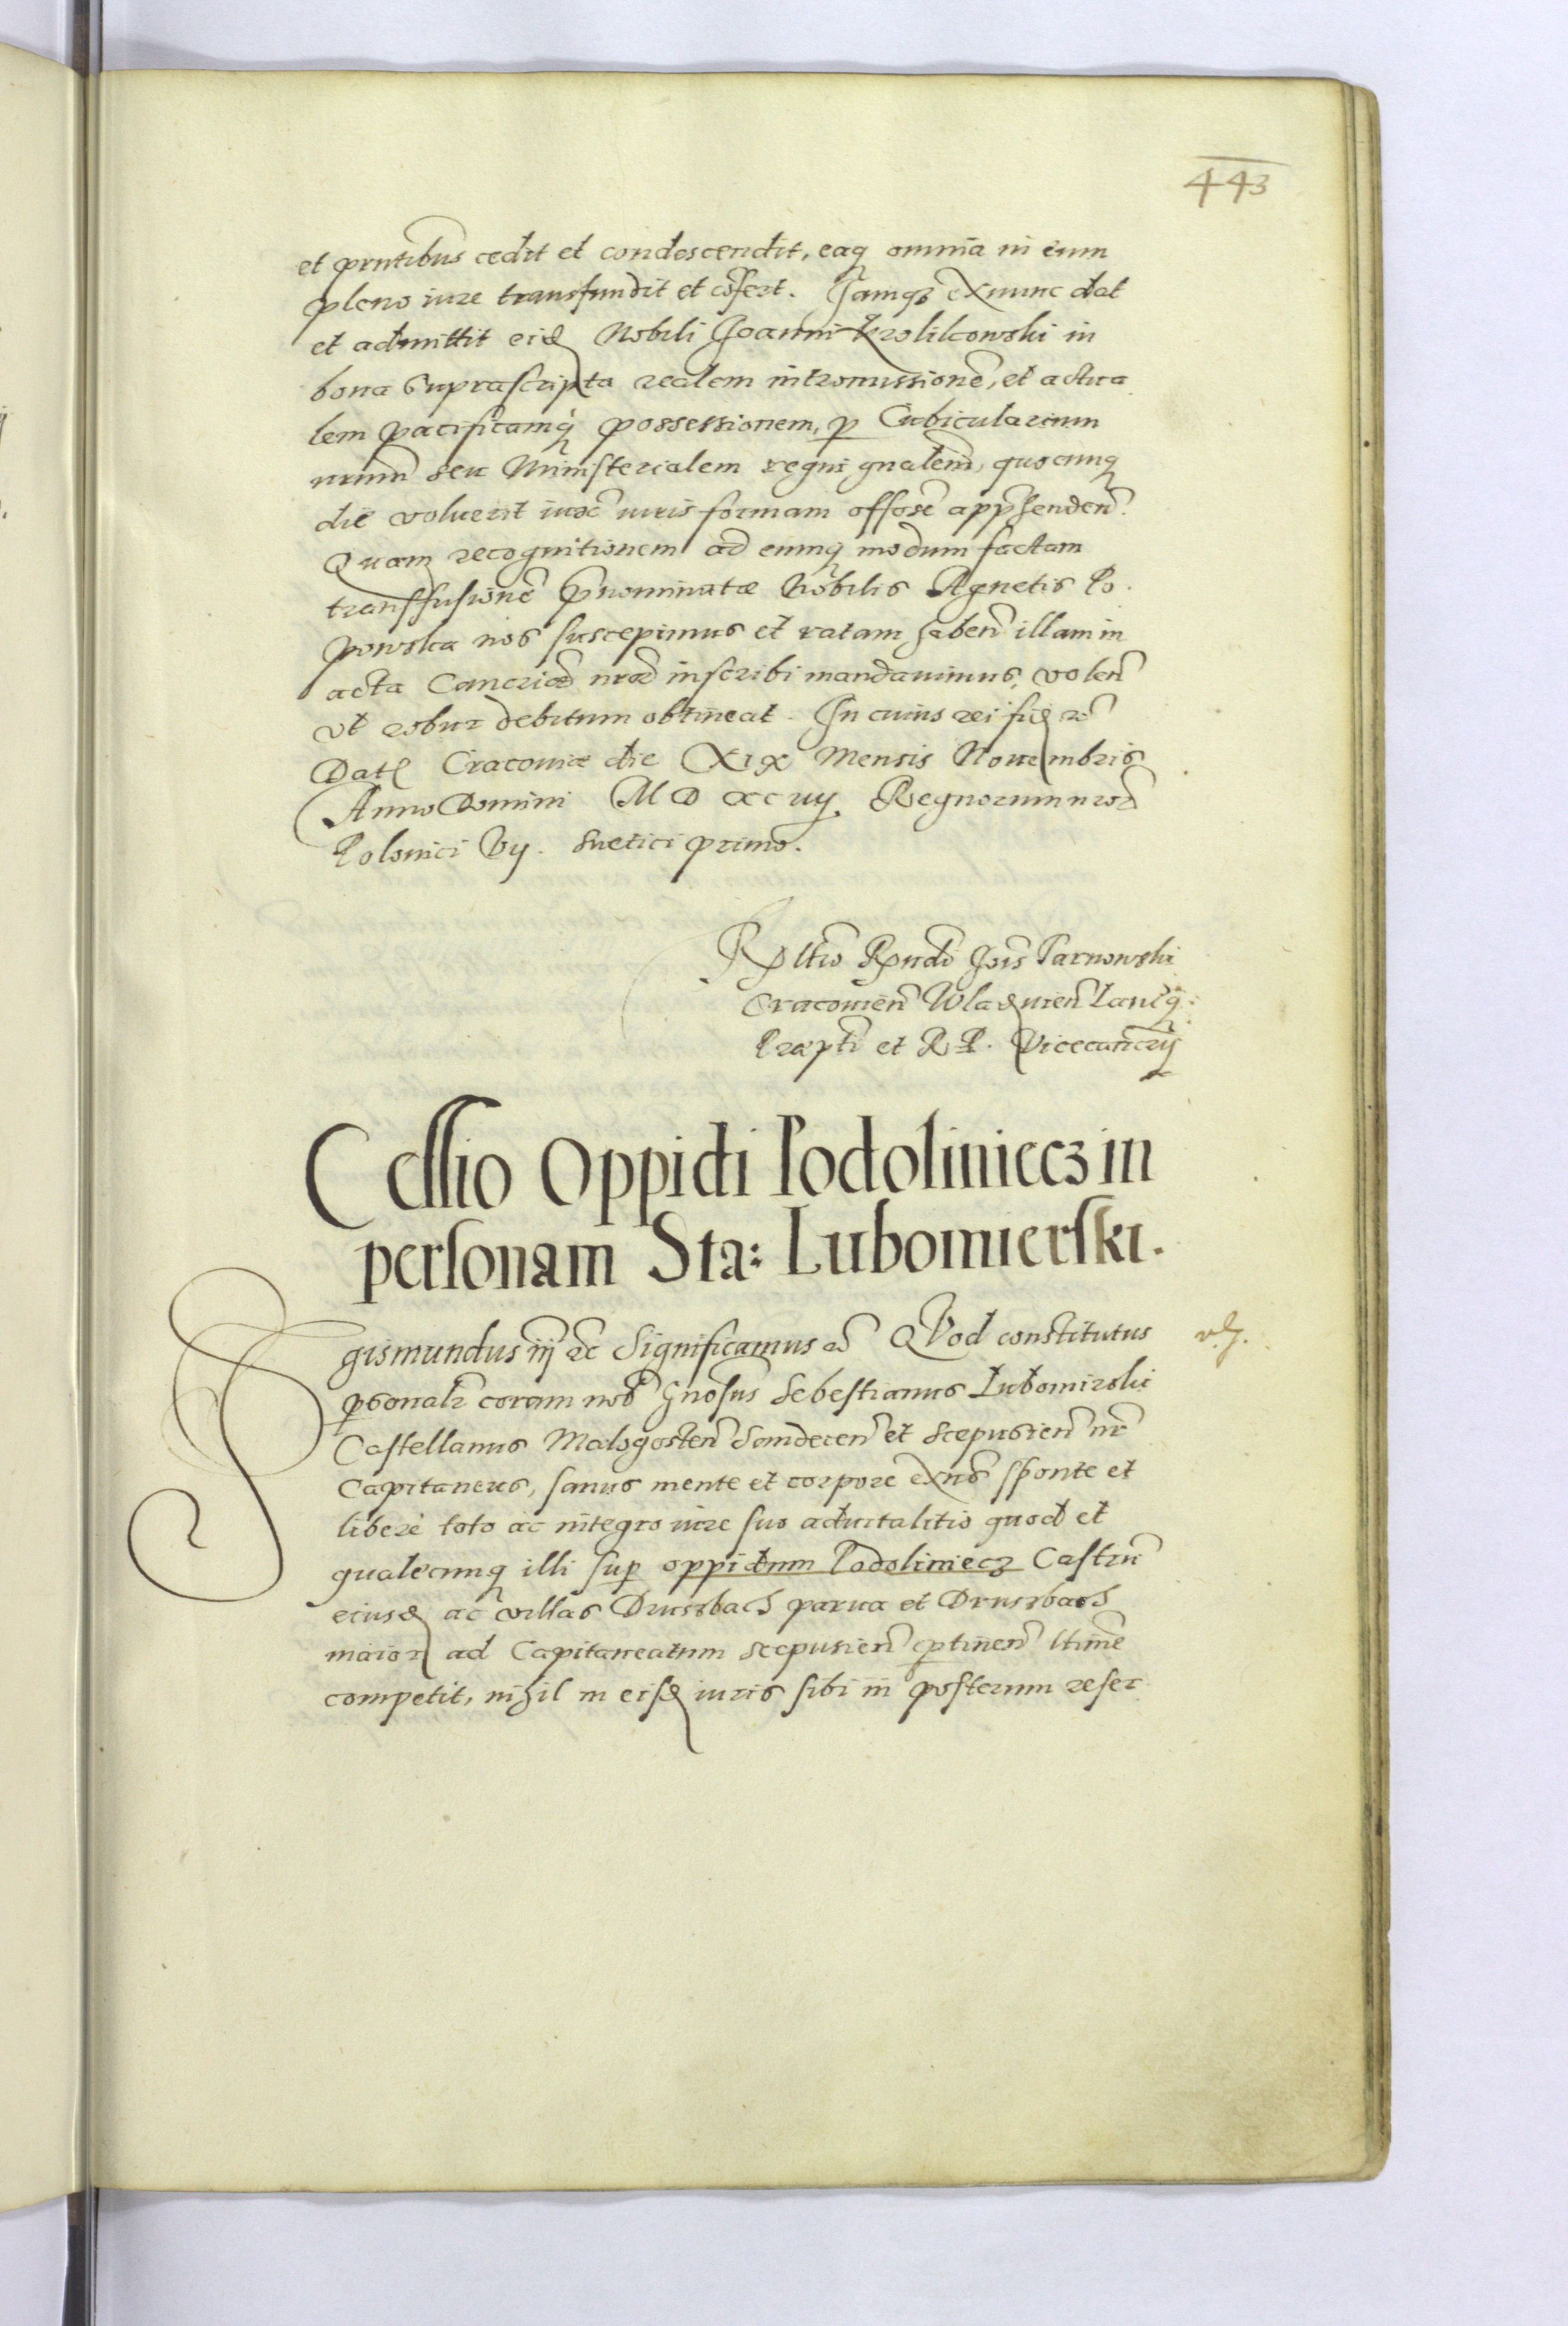 443
et prntibus cedit et condescendit, eaq omnia in eum
pleno iure transfundit et cōfert. Jamqȝ ex nunc dat
et admittit eid Nobili Joanni Krolikowski in
bona suprascripta realem intromissionē, et actua
lem pacificamq possessionem, p Cubicularium
nrum seu Ministerialem regni gnalem, quocunq
die voluerit iuxc iuris formam offose appħenden.
Quam recognitionem ad eumq modum factam
transfusionē pnominatæ Nobilis Agnetis Po
powska nos suscepimus et ratam haben illam in
acta Cancriæ nræ inscribi mandauimus, volen
vt robur debitum obtineat. In cuius rei fid rc
Dat Cracouiæ die XIX Mensis Nouembris
Anno Domini M D XC iiij. Regnorum nror
Polonici Vij. Suetici primo.
Rltio Rndi Jois Tarnowski
Cracouien Wladiuien Lanciq
Præpti et R. P. Vicecancrij
Cessio Oppidi Podoliniecz in
personam Sta: Lubomierski.
Sigismundus iij rc Significamus rc Quod constitutus
psonalr coram nob Gnosus Sebestianus Lubomirski
Castellanus Malogosten Sandecen et Scepusien nr
Capitaneus, sanus mente et corpore exns sponte et
liberè toto ac integro iure suo aduitalitio quod et
qualecunq illi sup oppidum Podoliniecz Castrū
eiusd ac villas Drusbach parua et Drusbach
maior ad Capitaneatum scepusien ptinen ltime
competit, nihil in eisd iuris sibi in posterum reser